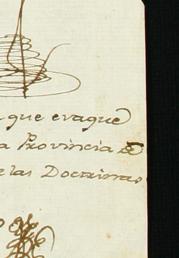 que evaque
a Provincia de
e las Doctrinas